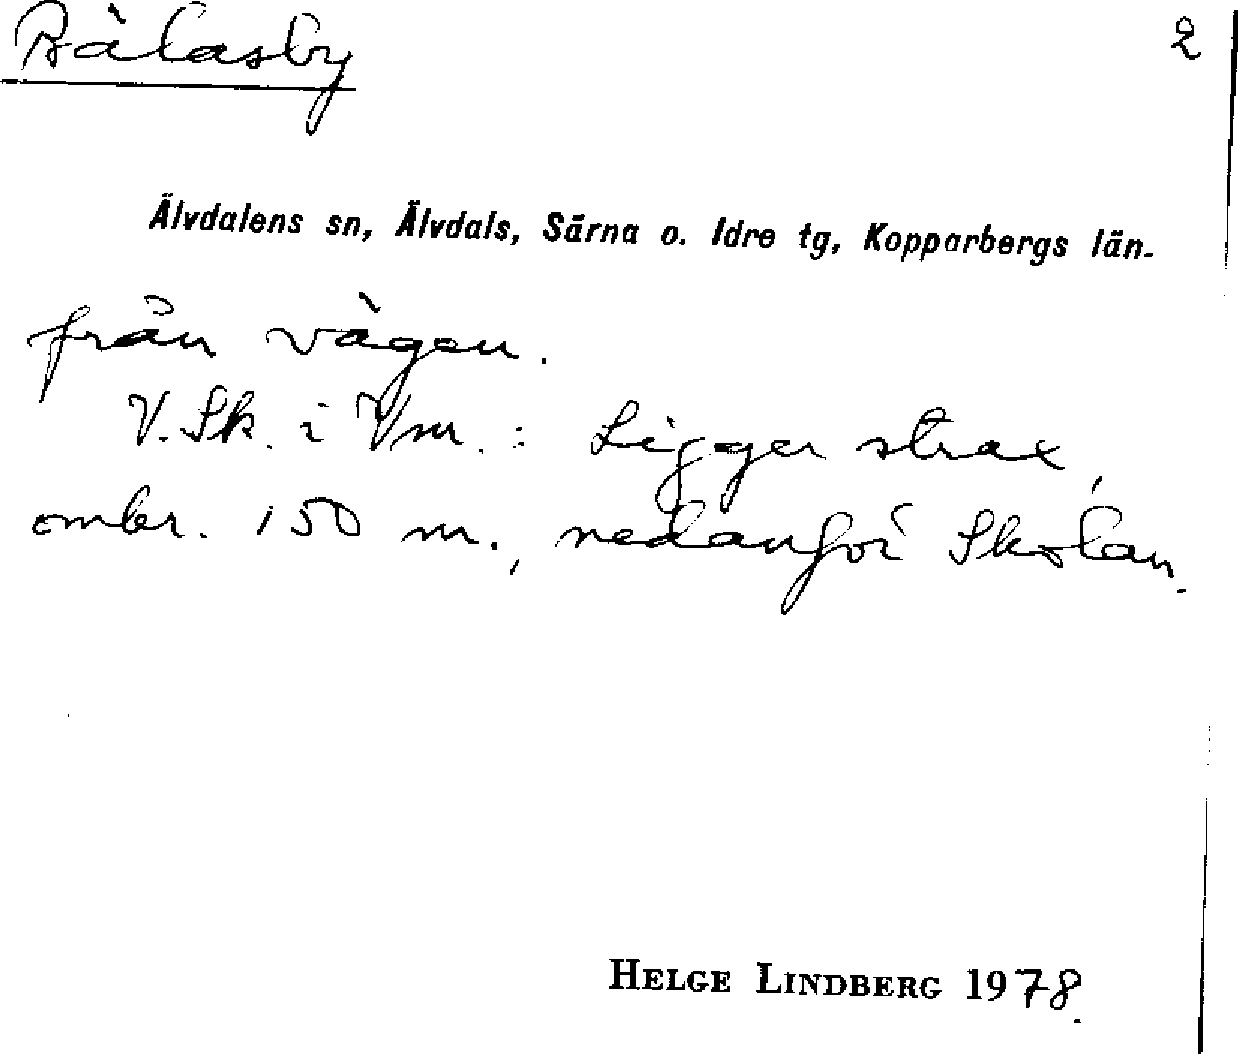 Bälasby 2
Älvdalens sn, Älvdals, Särna o. Idre tg, Kopparbergs län.
från vägen.
V. Sk. i Vm. : Ligger strax,
ombr. 150 m., nedanför Skolan.
HELGE LINDBERG 1978.